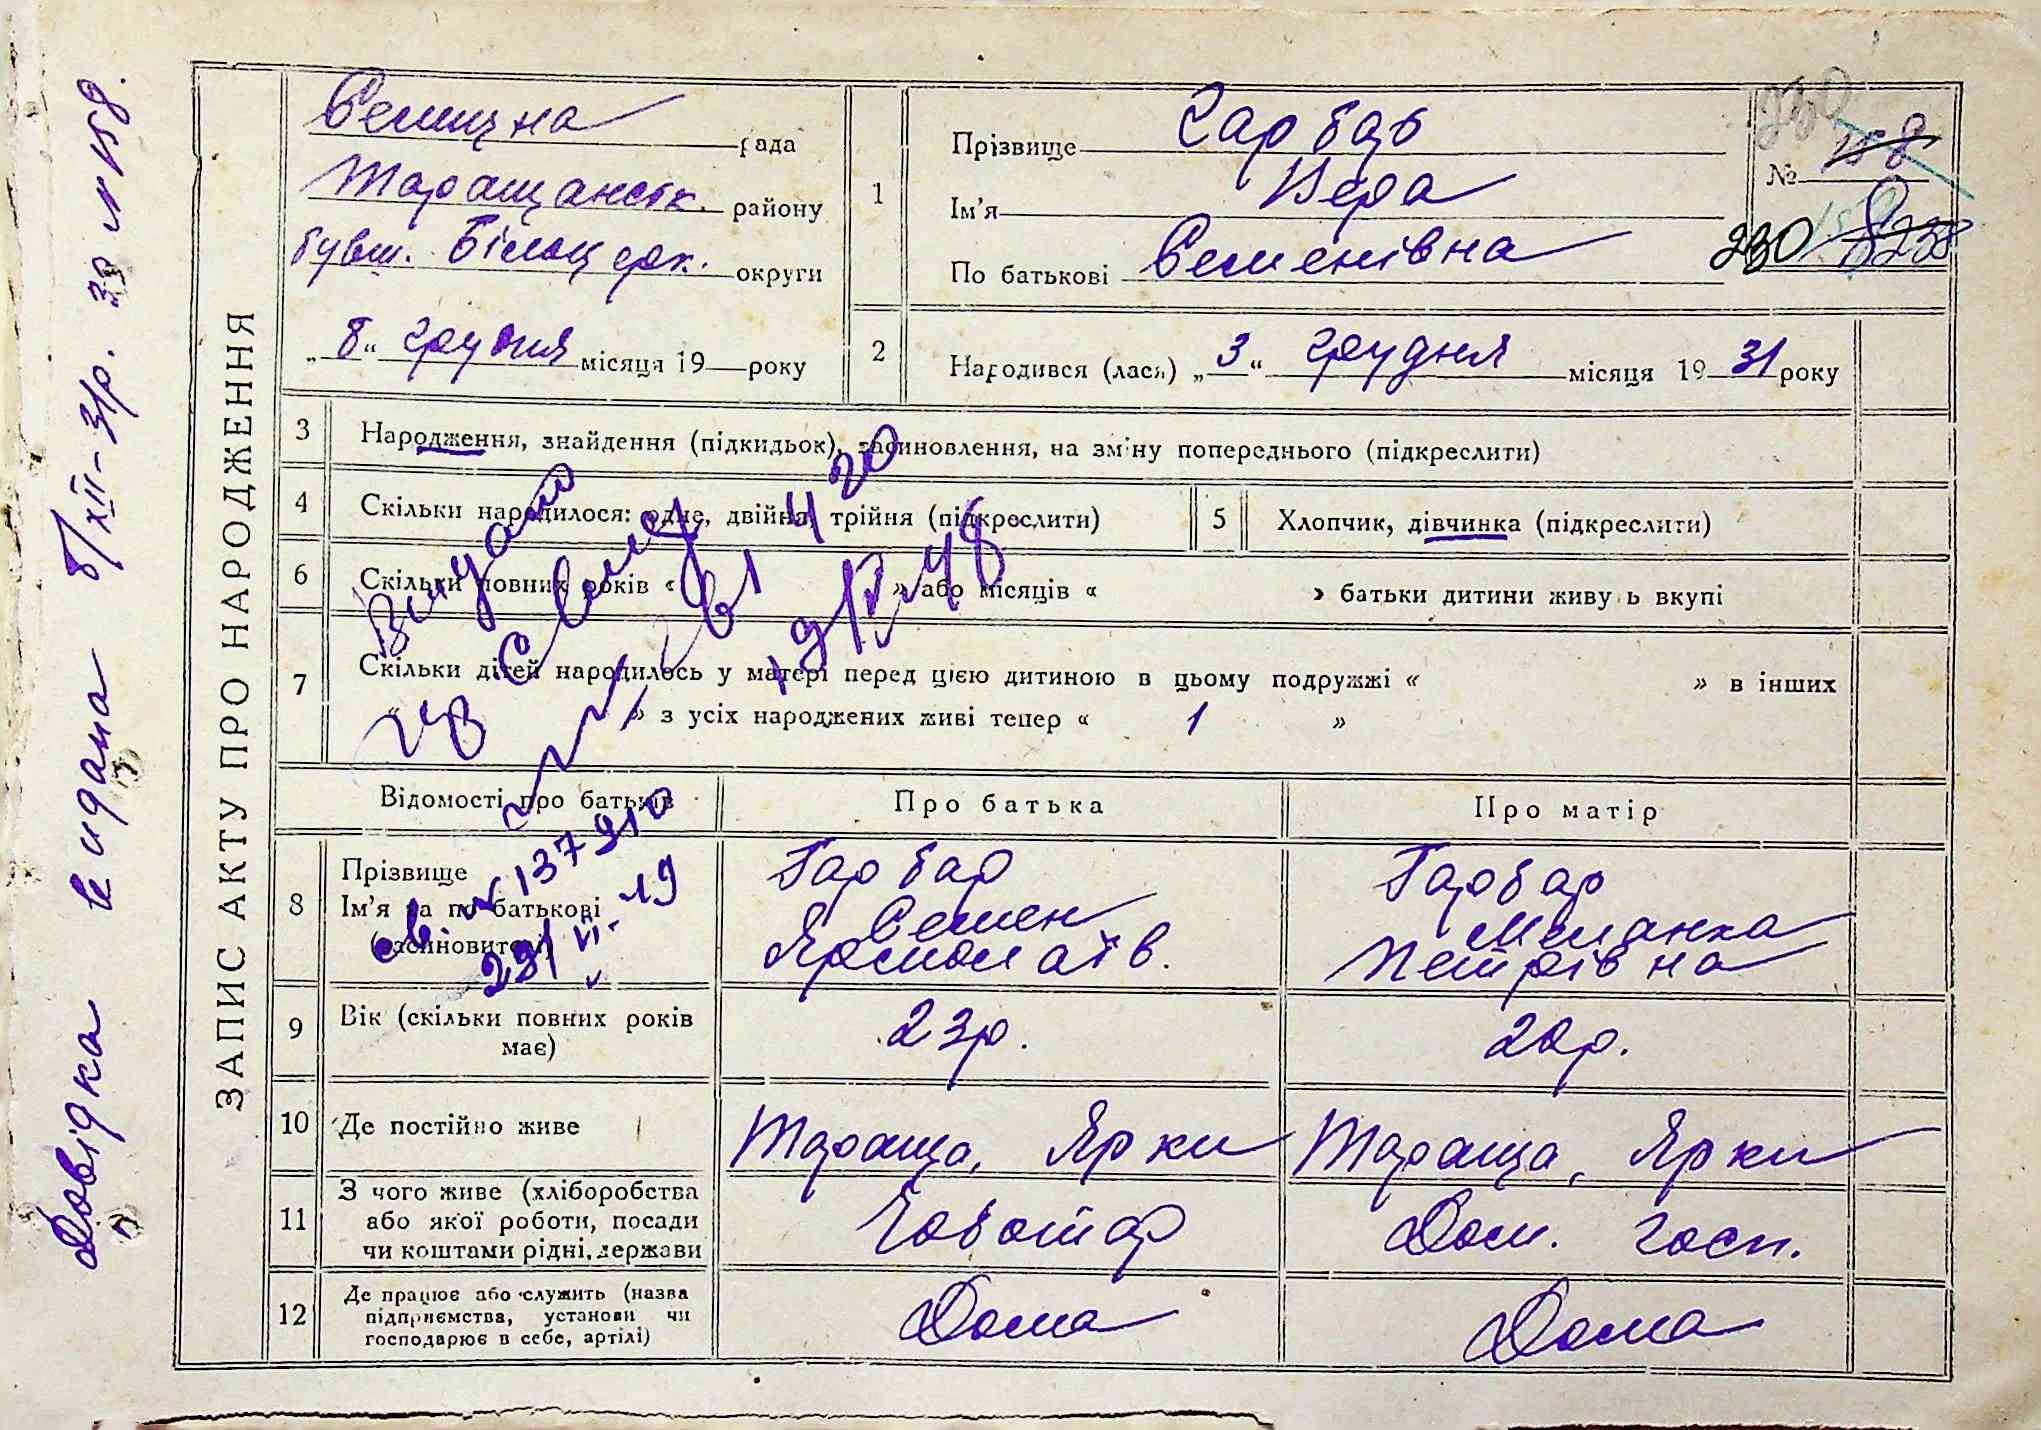 Довідка видана 8/XII-31р. за N 158.
ЗАПИС АКТУ ПРО НАРОДЖЕННЯ
Селищна рада
Таращанськ. району
бувш. Білоцерк. округи
„8“ грудня місяця 19 року
1
Прізвище Гарбар
Ім'я Вера
По батькові Семенівна
230
№ 158
230
2
Народився (лася) „3“ грудня місяця 1931 року
3
Народження, знайдення (підкидьок), засиновлення, на зміну попереднього (підкреслити)
4
Скільки народилося: одне, двійня, трійня (підкреслити)
5
Хлопчик, дівчинка (підкреслити)
6
Скільки повних років « » або місяців « » батьки дитини живуть вкупі
7
Скільки дітей народилось у матері перед цією дитиною в цьому подружжі « » в інших
« » з усіх народжених живі тепер « 1 »
Видано
Відомості про батьків
Про батька
Про матір
8
Прізвище
Ім'я та по батькові
(засиновителя)
св. N 137910
Гарбар
Семен
Ярмолаїв.
Гарбар
Меланка
Петрівна
9
Вік (скільки повних років має)
23р.
20р.
10
Де постійно живе
Тараща, Ярки
Тараща, Ярки
11
З чого живе (хліборобства
або якої роботи, посади
чи коштами рідні, держави
Чоботар
Дом. госп.
12
Де працює або служить (назва
підприємства, установи чи
господарює в себе, артілі)
Дома
Дома